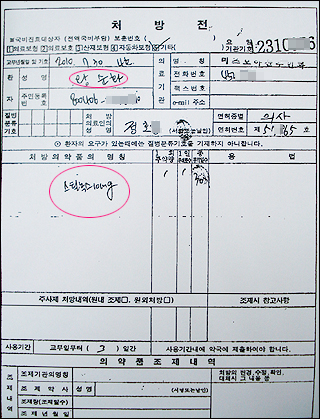 처 방 전
1의료보험 2의료보호 3산재보험 4자동차보험 기타
요양기관기호 : 2310
교부년월일 및 번호 2010. 7. 30
의료기관
명 칭
전화번호
팩스번호
e-mail 주소
환자
성 명
주민등록번호
질병분류기호
처방의료인의 성명
(서명또는날인)
면허종별 의사
면허번호 제 호
※ 환자의 요구가 있는때에는 질병분류기호를 기재하지 아니합니다.
처 방 의 약 품 의 명 칭
용 법
스틸녹스 10mg
1 1
주사제 처방내역(원내 조제□, 원외처방□)
조제시 참고사항
사용기간 교부일로부터 ( 3 ) 일간
사용기간내에 약국에 제출하여야 합니다.
의 약 품 조 제 내 역
조제내역
조제기관의명칭
조 제 약 사 성 명
(서명또는날인)
조제량(조제일수)
조 제 년 월 일
처방의 변경, 수정, 확인,
대체시 그 내용 등